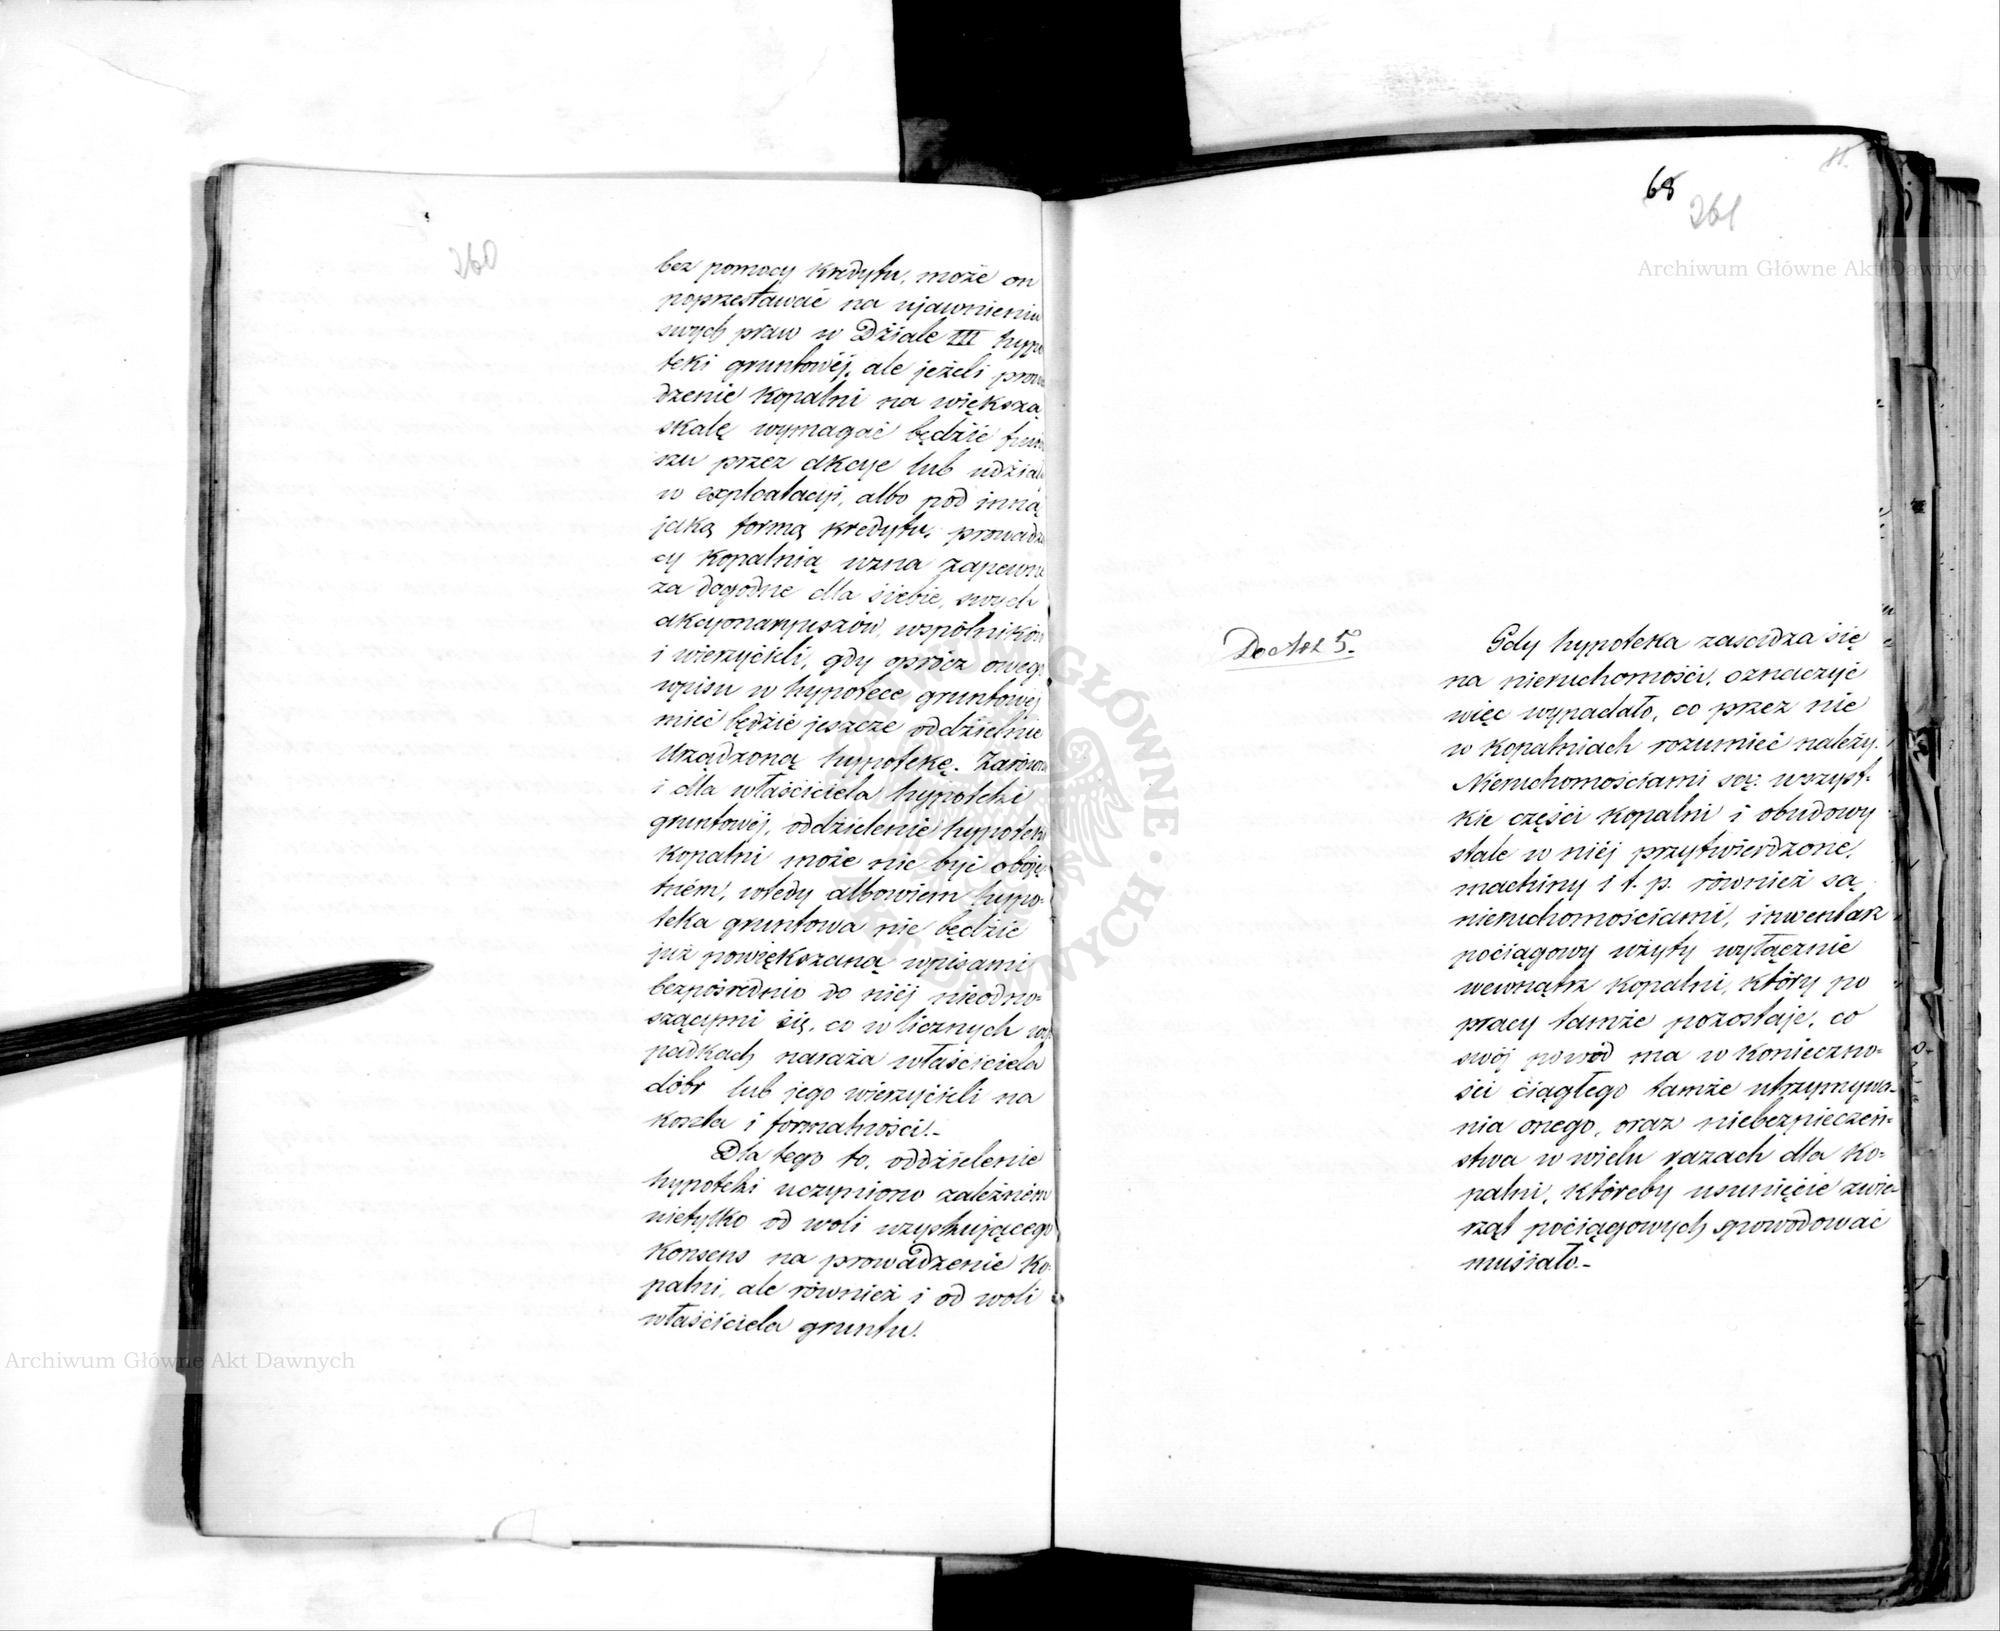 260
bez pomocy kredytu, może on
poprzestawać na ujawnieniu
swych praw w Dziale III hypo
teki gruntowéj, ale jeżeli prowa
dzenie kopalni na większą
skalę wymagać będzie
szu przez akcye lub udział
w exploatacyi, albo pod inną
jaką formą kredytu, prowadzą
cy kopalnią uzna zapewne
za dogodne dla siebie, swych
akcyonaryuszów, wspólników
i wierzycieli, gdy oprócz owego
wpisu w hypotece gruntowéj
mieć będzie jeszcze oddzielnie
urządzoną hypotekę. Zarówno
i dla właściciela hypoteki
gruntowéj, oddzielenie hypoteki
kopalni może nie być oboję-
tném, wtedy albowiem hypo-
teka gruntowa nie będzie
już powiększaną wpisami
bezpośrednio do niéj nieodno-
szącymi się, co w licznych wy-
padkach naraża właściciela
dóbr lub jego wierzycieli na
koszta i formalności.-
Dla tego to, oddzielenie
hypoteki uczyniono zależném
nietylko od woli uzyskującego
konsens na prowadzenie ko-
palni, ale również i od woli
właściciela gruntu.
68
261
Do Art 5.
Gdy hypoteka zasadza się
na nieruchomości, oznaczyć
więc wypadało, co przez nie
w kopalniach rozumieć należy.
Nieruchomościami są: wszyst-
kie części kopalni i obudowy
stale w niéj przytwierdzone,
machiny i t. p. również są
nieruchomościami, inwentarz
pociągowy użyty wyłącznie
wewnątrz kopalni, który po
pracy tamże pozostaje, co
swój powód ma w konieczno-
ści ciągłego tamże utrzymywa-
nia onego, oraz niebezpieczeń-
stwa w wielu razach dla ko-
palni, któreby usunięcie zwie-
rząt pociągowych spowodować
musiało.-
Archiwum Główne Akt Dawnych
Archiwum Główne Akt Dawnych
ARCHIWUM GŁÓWNE AKT DAWNYCH